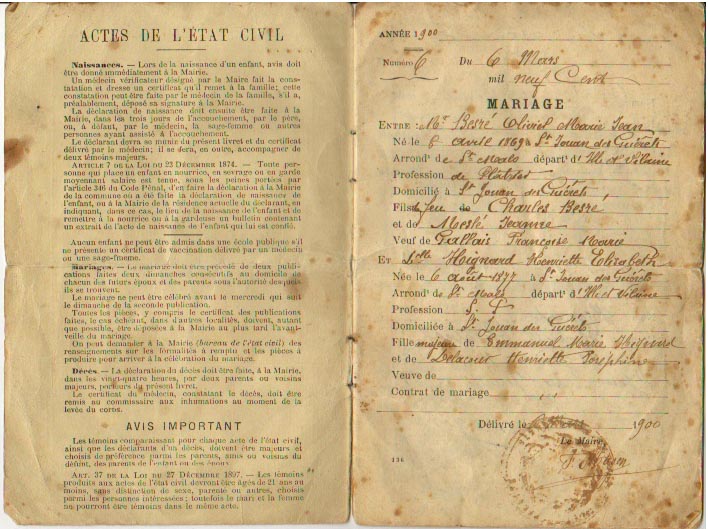 ACTES DE L'ÉTAT CIVIL
Naissances. — Lors de la naissance d'un enfant, avis doit
être donné immédiatement à la Mairie.
Un médecin vérificateur désigné par le Maire fait la cons-
tatation et dresse un certificat qu'il remet à la famille ; cette
constatation peut être faite par le médecin de la famille, s'il a,
préalablement, déposé sa signature à la Mairie.
La déclaration de naissance doit ensuite être faite à la
Mairie, dans les trois jours de l'accouchement, par le père,
ou, à défaut, par le médecin, la sage-femme ou autres
personnes ayant assisté à l'accouchement.
Le déclarant devra se munir du présent livret et du certificat
délivré par le médecin ; il se fera, en outre, accompagner de
deux témoins majeurs.
ARTICLE 7 DE LA LOI DU 23 DÉCEMBRE 1874. — Toute per-
sonne qui place un enfant en nourrice, en sevrage ou en garde
moyennant salaire est tenue, sous les peines portées par
l'article 346 du Code Pénal, d'en faire la déclaration à la Mairie
de la commune où a été faite la déclaration de naissance de
l'enfant, ou à la Mairie de la résidence actuelle du déclarant, en
indiquant, dans ce cas, le lieu de la naissance de l'enfant et de
remettre à la nourrice ou à la gardeuse un bulletin contenant
un extrait de l'acte de naissance de l'enfant qui lui est confié.
Aucun enfant ne peut être admis dans une école publique s'il
ne présente un certificat de vaccination délivré par un médecin
ou une sage-femme.
Mariages. — Le mariage doit être précédé de deux publica-
tions faites deux dimanches consécutifs au domicile de
chacun des futurs époux et des parents sous l'autorité desquels
ils se trouvent.
Le mariage ne peut être célébré avant le mercredi qui suit
le dimanche de la seconde publication.
Toutes les pièces, y compris le certificat des publications
faites, le cas échéant, dans d'autres localités, doivent, autant
que possible, être déposées à la Mairie au plus tard l'avant-
veille du mariage.
On peut demander à la Mairie (bureau de l'état civil) des
renseignements sur les formalités à remplir et les pièces à
produire pour arriver à la célébration du mariage.
Décès. — La déclaration du décès doit être faite, à la Mairie,
dans les vingt-quatre heures, par deux parents ou voisins
majeurs, porteurs du présent livret.
Le certificat du médecin, constatant le décès, doit être
remis au commissaire aux inhumations au moment de la
levée du corps.
AVIS IMPORTANT
Les témoins comparaissant pour chaque acte de l'état civil,
ainsi que les déclarants d'un décès, doivent être majeurs et
choisis de préférence parmi les parents, amis ou voisins du
défunt, des parents de l'enfant ou des époux.
ART. 37 DE LA LOI DU 27 DÉCEMBRE 1897. — Les témoins
produits aux actes de l'état civil devront être âgés de 21 ans au
moins, sans distinction de sexe, parents ou autres, choisis
par les personnes intéressées ; toutefois le mari et la femme
ne pourront être témoins dans le même acte.
ANNÉE 1900
Numéro 6 Du 6 Mars
mil neuf Cent
MARIAGE
ENTRE : Mr Besré Olivier Marie Jean
Né le 6 Avril 1869 à St Jouan des Guérets
Arrondt de St Malo départt d'Ille et Vilaine
Profession de
Domicilié à St Jouan des Guérets
Fils de feu de Charles Besré
et de Meslé Jeanne
Veuf de Gallais Françoise Marie
ET Dlle Heignard Henriette Elizabeth
Née le 6 août 1877 à St Jouan des Guérets
Arrondt de St Malo départt d'Ille et Vilaine
Profession
Domiciliée à St Jouan des Guérets
Fille majeure de Emmanuel Marie Heignard
et de Delacour Henriette Joséphine
Veuve de
Contrat de mariage
Délivré le 1900
Le Maire,
136